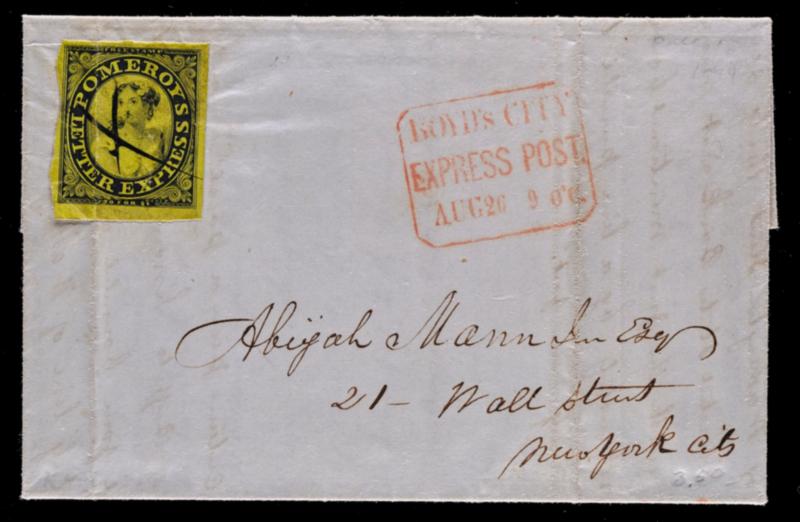 FREE STAMP
POMEROY'S
LETTER EXPRESS
20 FOR $1
BOYD'S CITY
EXPRESS POST.
AUG 26 9 O'C.
Abijah Mann Jnr Esq
21 - Wall Street
New York City
3.50